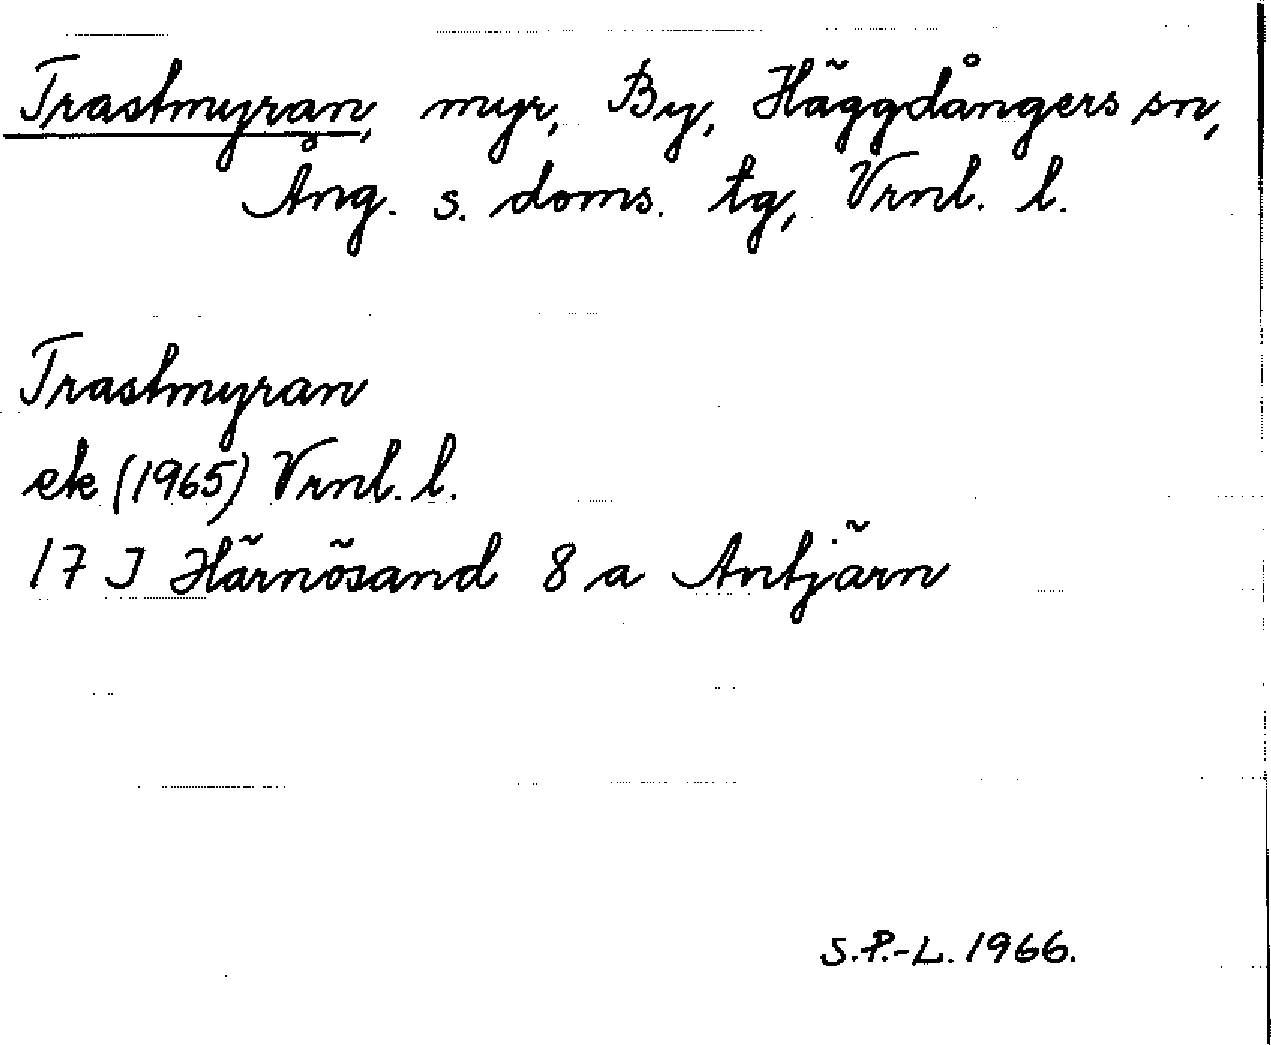 Trastmyran, myr, By, Häggdångers sn,
Ång. s. doms. tg, Vrnl. l.
Trastmyran
ek (1965) Vrnl. l.
17 J Härnösand 8 a Antjärn
S.P.-L. 1966.